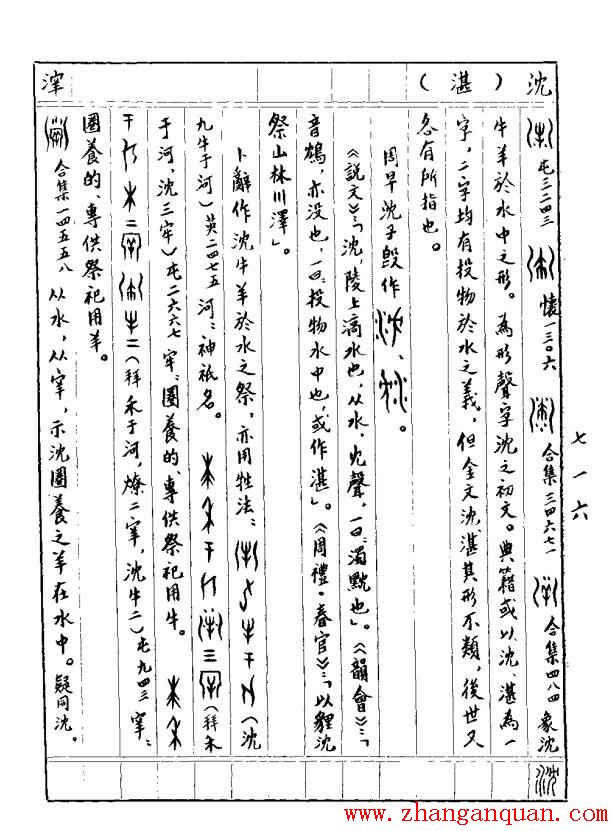 沈(湛) 滓
七一六
屯三二四三 懷一三〇六 合集三四六七一 合集四八四 象沈
牛羊於水中之形。為形聲字沈之初文。典籍或以沈、湛為一
字,二字均有投物於水之義,但金文沈、湛其形不類,後世又
各有所指也。
周早沈子𣪘作 、 。
《說文》:「沈,陵上滈水也,从水,冘聲,一曰:濁黕也」。《韻會》:「
音鴆,亦没也,一曰:投物水中也,或作湛」。《周禮·春官》:「以貍沈
祭山林川澤」。
卜辭作沈牛羊於水之祭,亦用牲法: (沈
九牛于河)英二四七五 河:神祇名。 (拜禾
于河,沈三牢)屯二六六七 牢:圈養的、專供祭祀用牛。
(拜禾于河,燎二窜,沈牛二)屯九四三 窜:
圈養的、專供祭祀用羊。
合集一四五五八 从水,从窜,示沈圈養之羊在水中。疑同沈。
www.zhanganquan.com